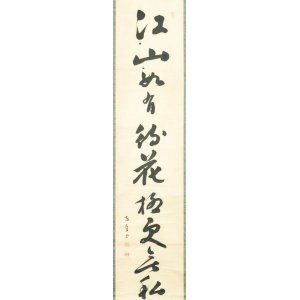 江山如有待花柳更無私